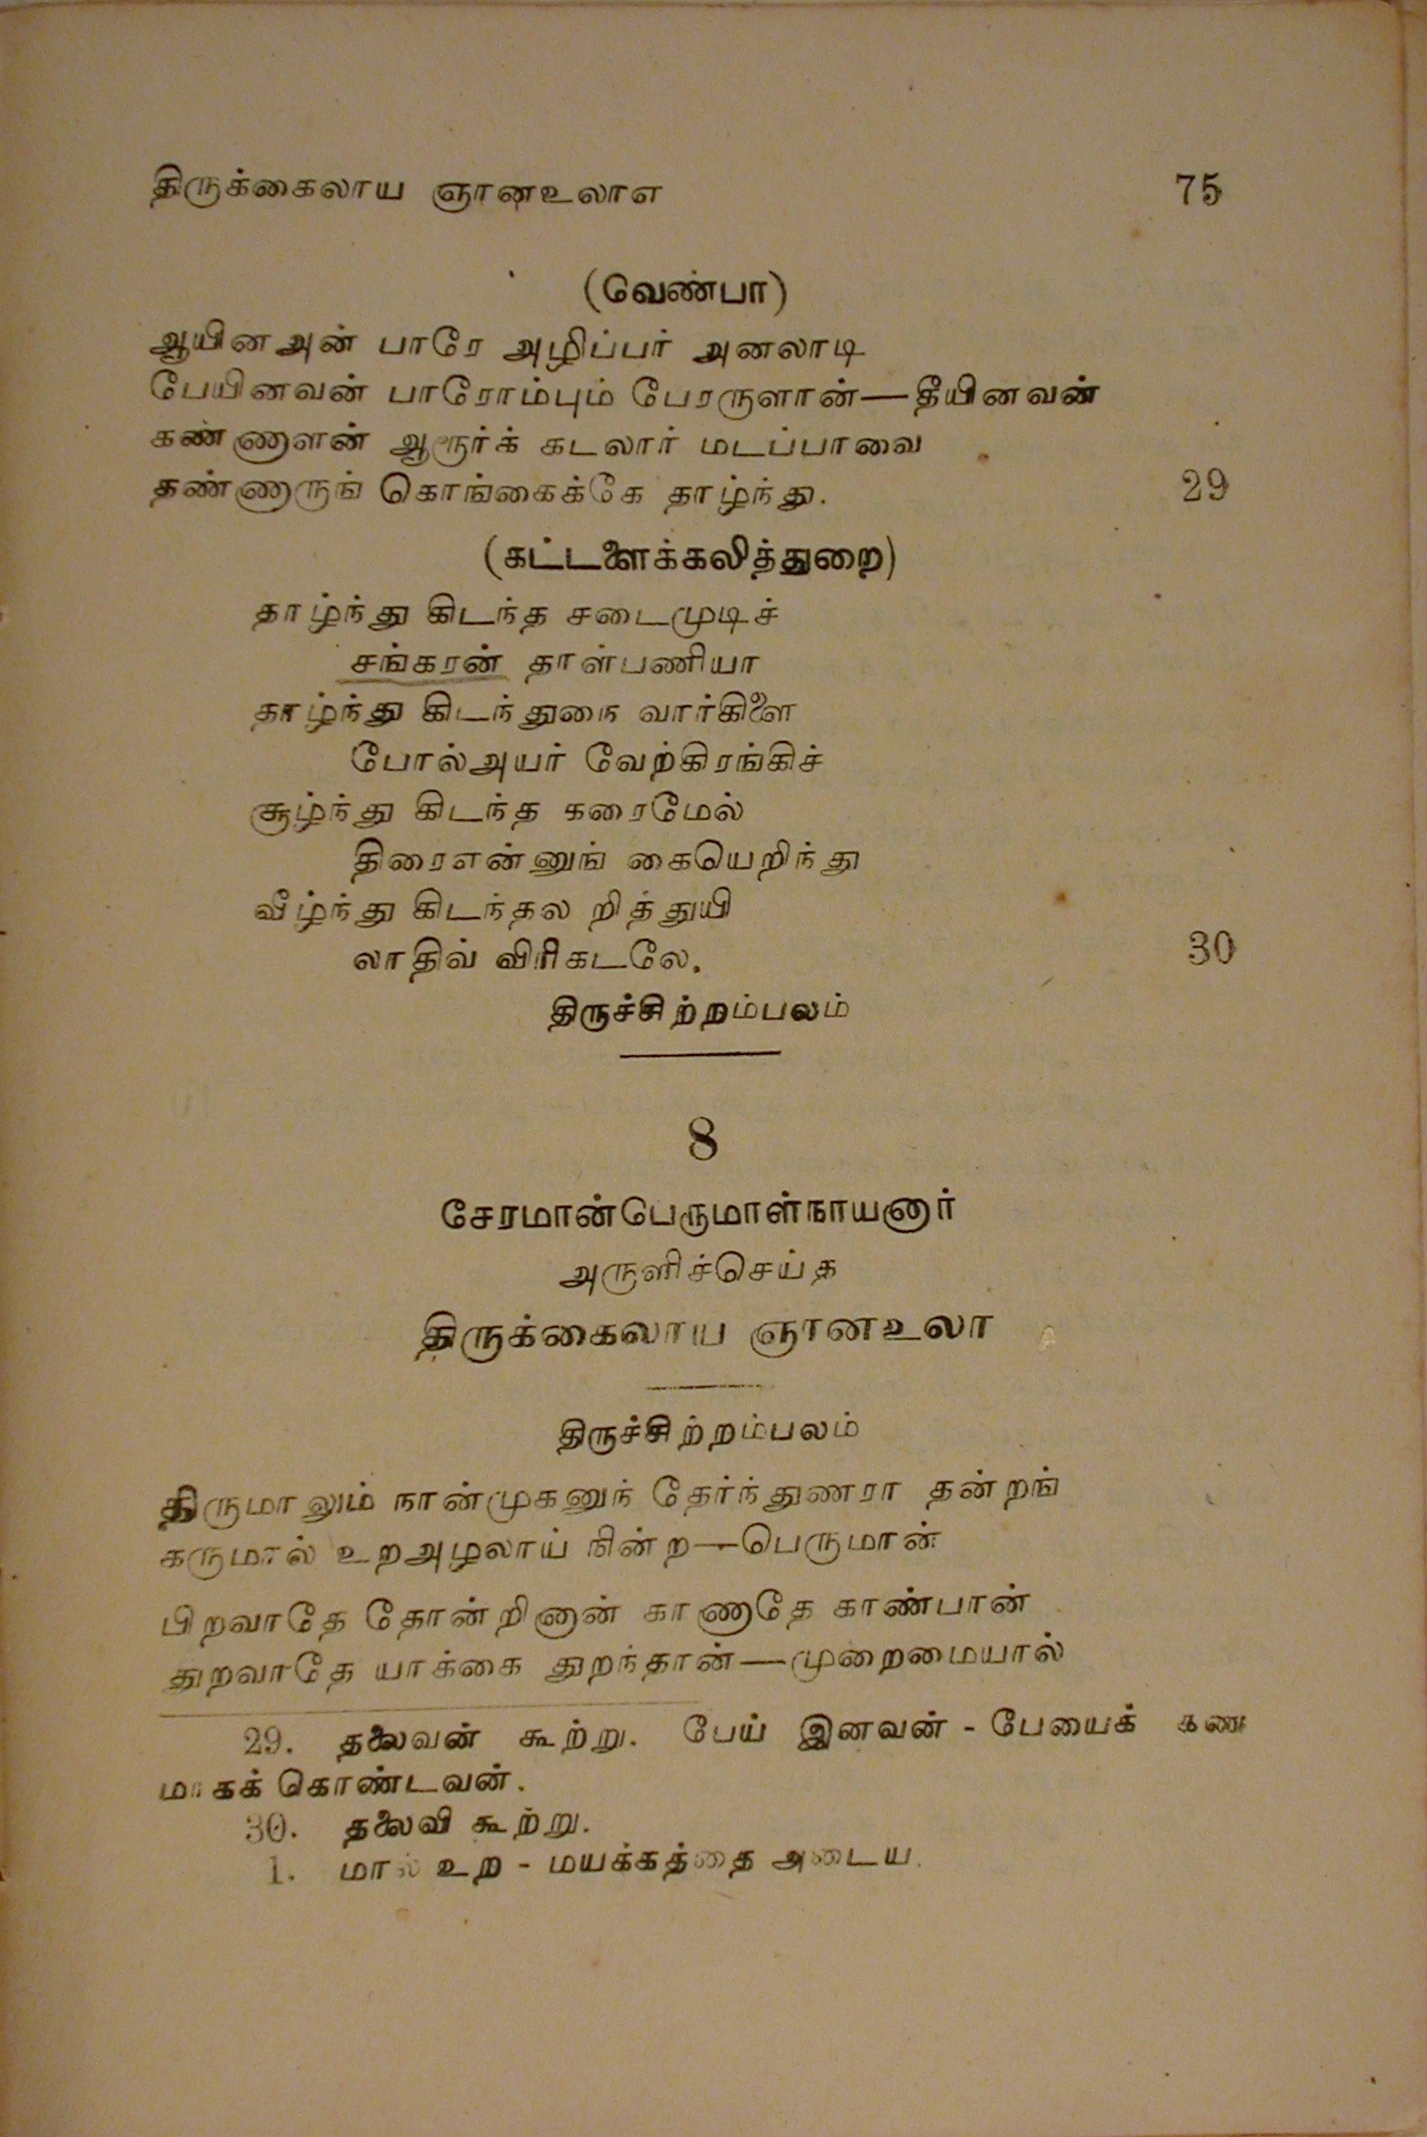 திருக்கைலாய ஞானஉலாஎ 75
(வேண்பா)
ஆயினஅன் பாரே அழிப்பர் அனலாடி
பேயினவன் பாரோம்பும் பேரருளான்—தீயினவன்
கண்ணாளன் ஆரூர்க் கடலார் மடப்பாவை
தண்ணாருங் கொங்கைக்கே தாழ்ந்து. 29
(கட்டளைக்கலித்துறை)
தாழ்ந்து கிடந்த சடைமுடிச்
சங்கரன் தாள்பணியா
தாழ்ந்து கிடந்துநை வார்கிளை
போல்அயர் வேற்கிரங்கிச்
சூழ்ந்து கிடந்த கரைமேல்
திரைஎன்னுங் கையெறிந்து
வீழ்ந்து கிடந்தல றித்துயி
லாதிவ் விரிகடலே. 30
திருச்சிற்றம்பலம்
8
சேரமான்பெருமாள்நாயனார்
அருளிச்செய்த
திருக்கைலாய ஞானஉலா
திருச்சிற்றம்பலம்
திருமாலும் நான்முகனுந் தேர்ந்துணரா தன்றங்
கருமால் உறஅழலாய் நின்ற—பெருமான்
பிறவாதே தோன்றினான் காணாதே காண்பான்
துறவாதே யாக்கை துறந்தான்—முறைமையால்
29. தலைவன் கூற்று. பேய் இனவன் - பேயைக் கண
மாகக் கொண்டவன்.
30. தலைவி கூற்று.
1. மால் உற - மயக்கத்தை அடைய.